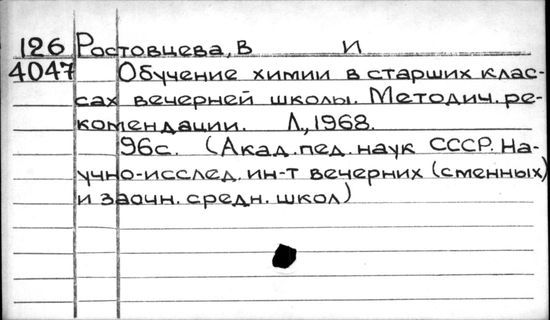 126 Ростовцева, В И
4047 Обучение химии в старших клас-
сах вечерней школы. Методич. ре-
комендации. Л., 1968.
96с. (Акад. пед. наук СССР. На-
учно-исслед. ин-т вечерних (сменных)
и заочн. средн. школ)